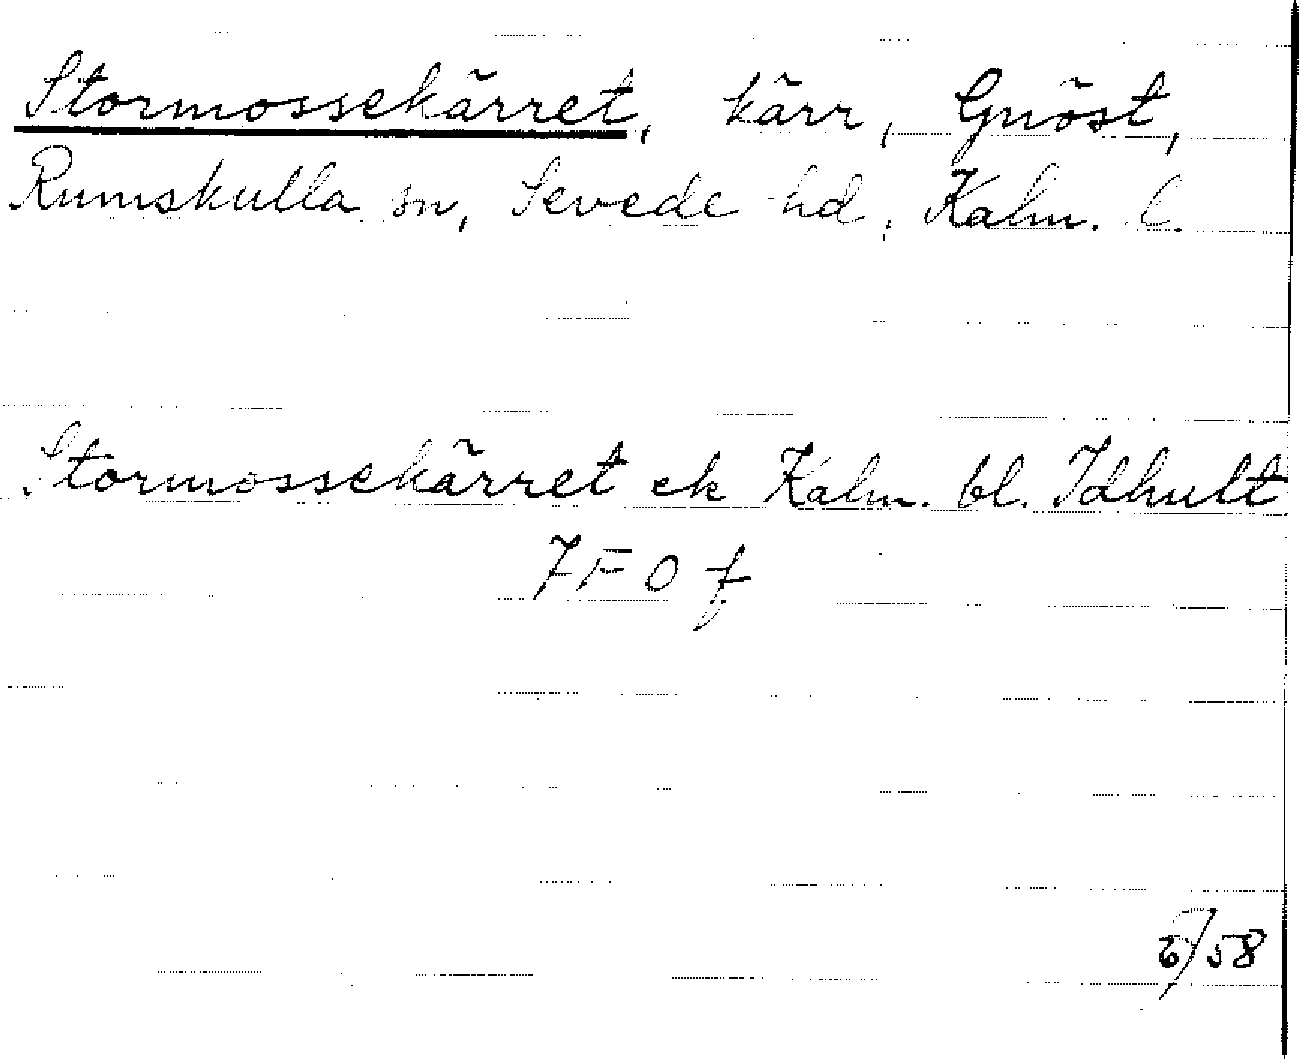 Stormossekärret, kärr, Gnöst,
Rumskulla sn, Sevede hd, Kalm. l.
Stormossekärret ek Kalm. bl. Idhult
7F0f
6/58